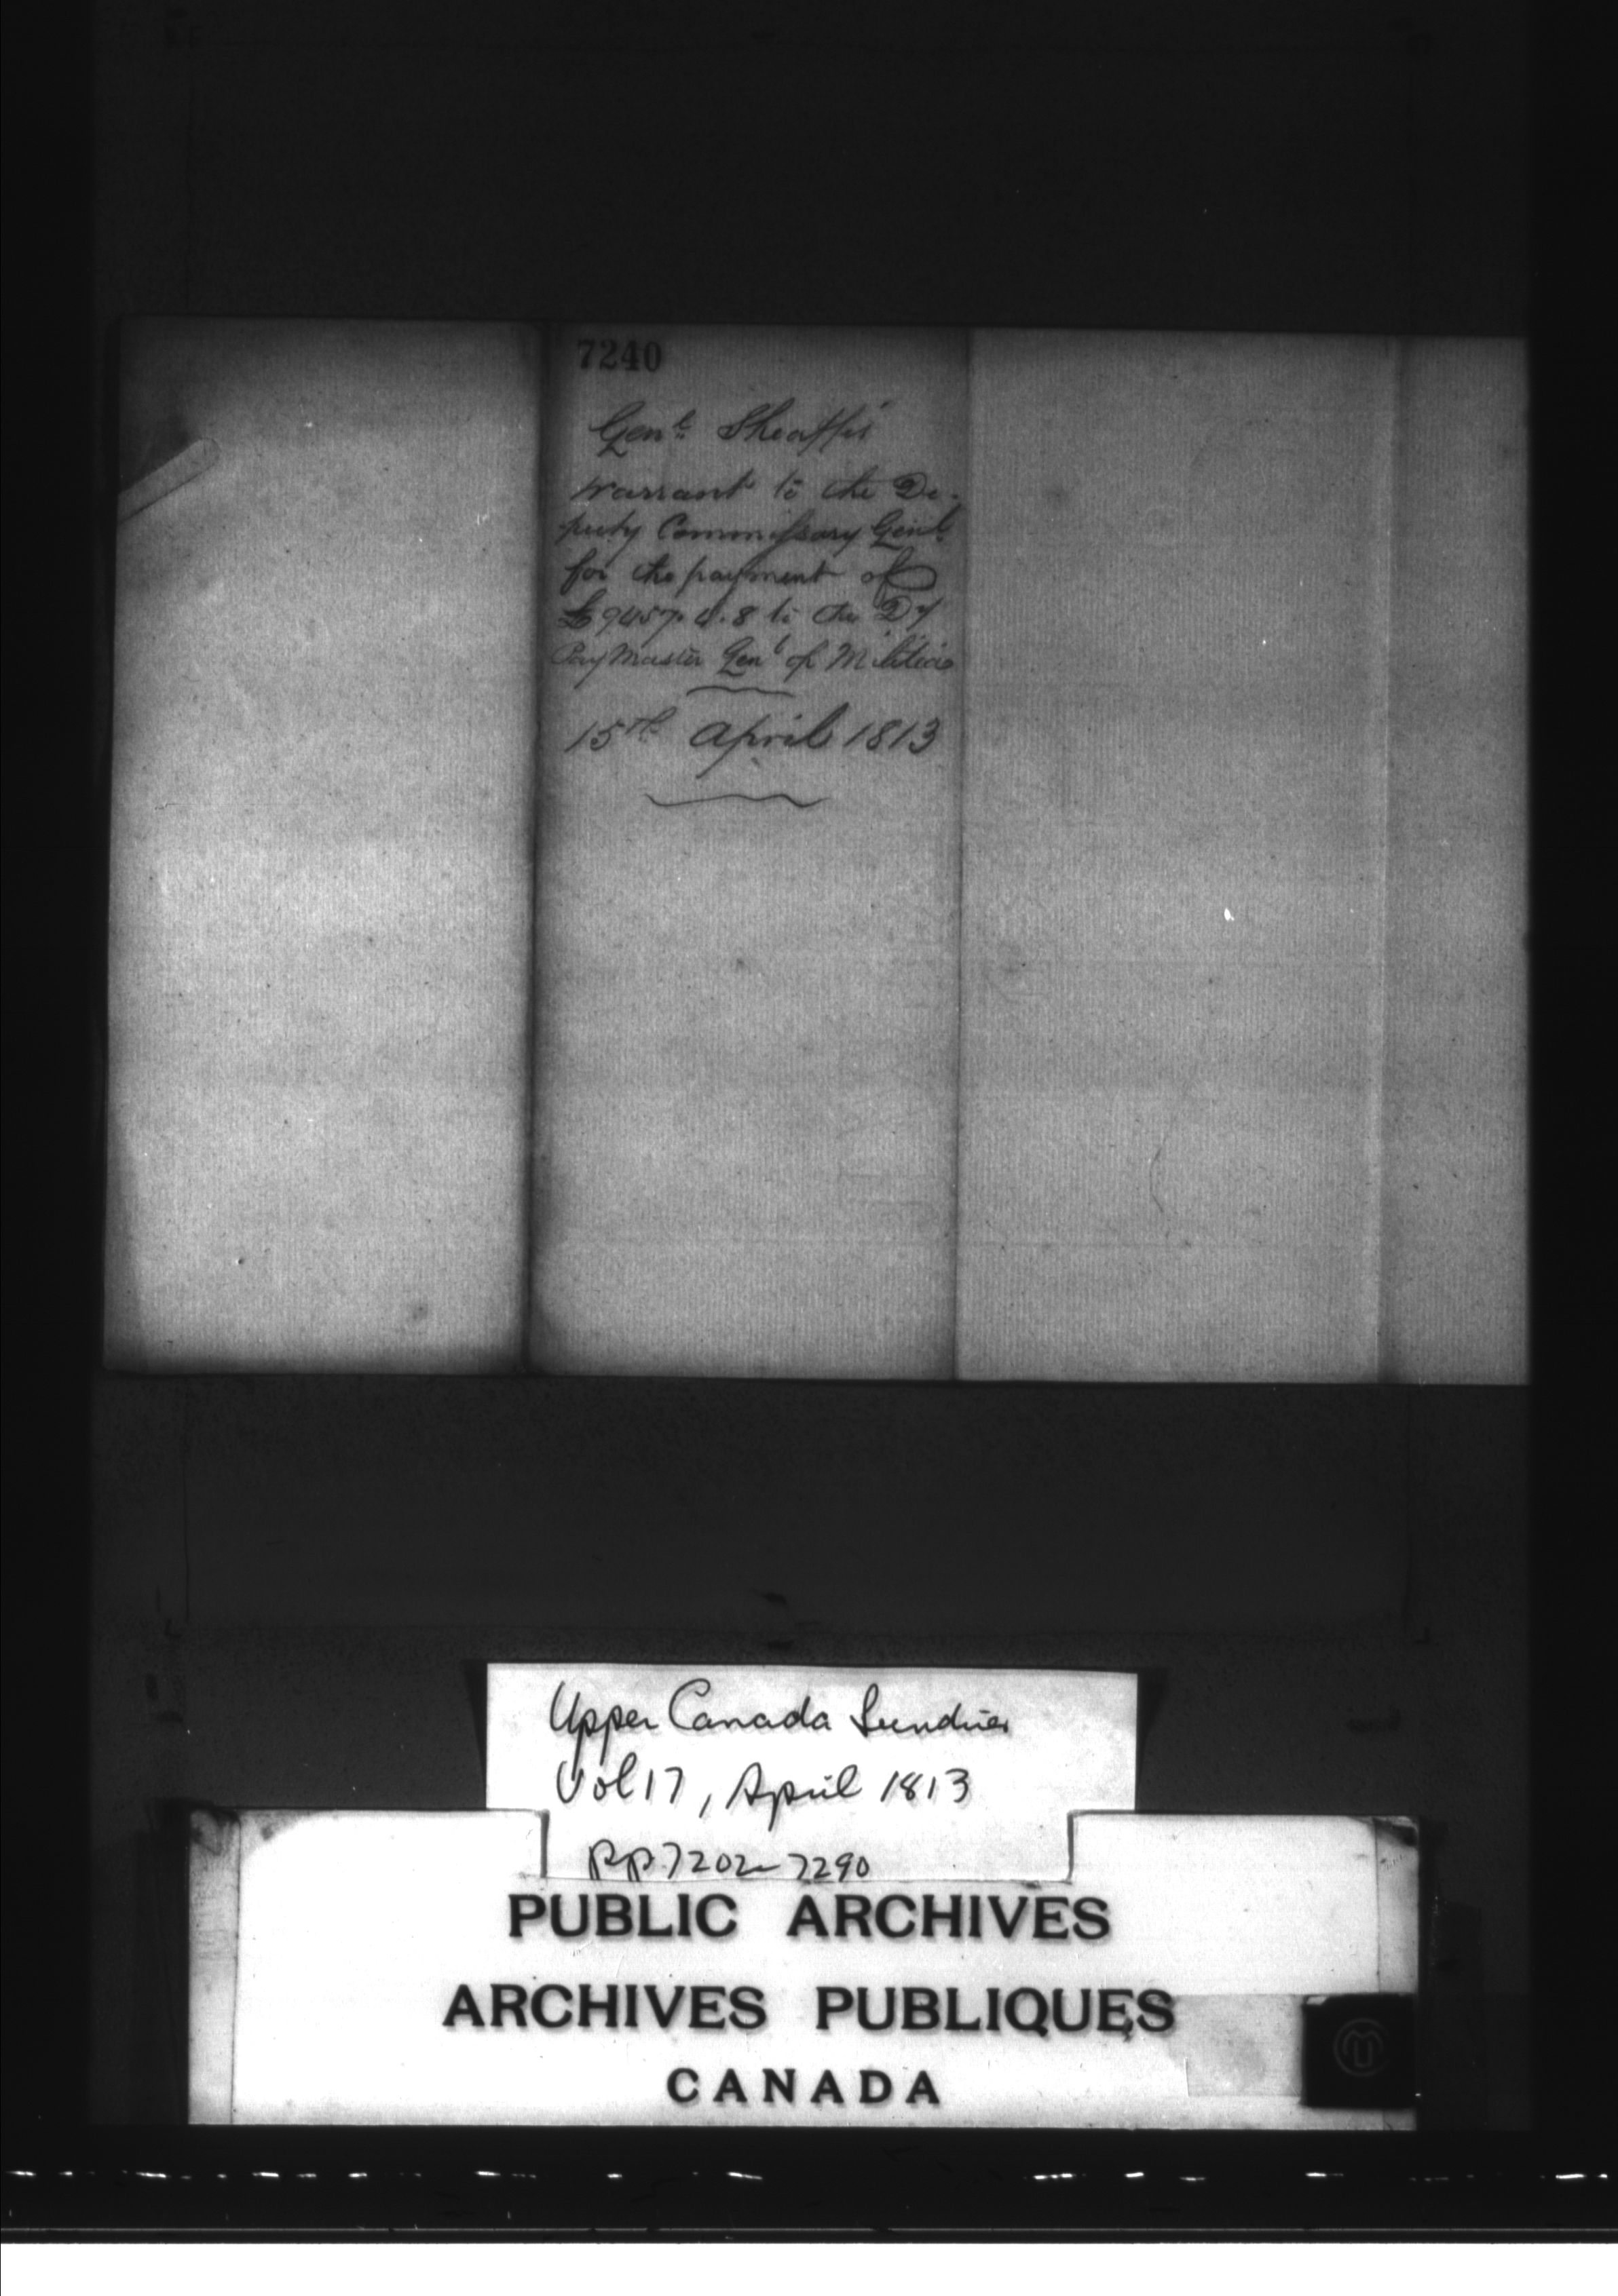 7240
Genl. Sheaffe's
Warrant to the De-
puty Commissary Genl.
for the payment of
£9457.4.8 to the Dy
Pay Master Genl of Militia
15th April 1813
Upper Canada Sundries
Vol 17, April 1813
pp. 7202-7290
PUBLIC ARCHIVES
ARCHIVES PUBLIQUES
CANADA